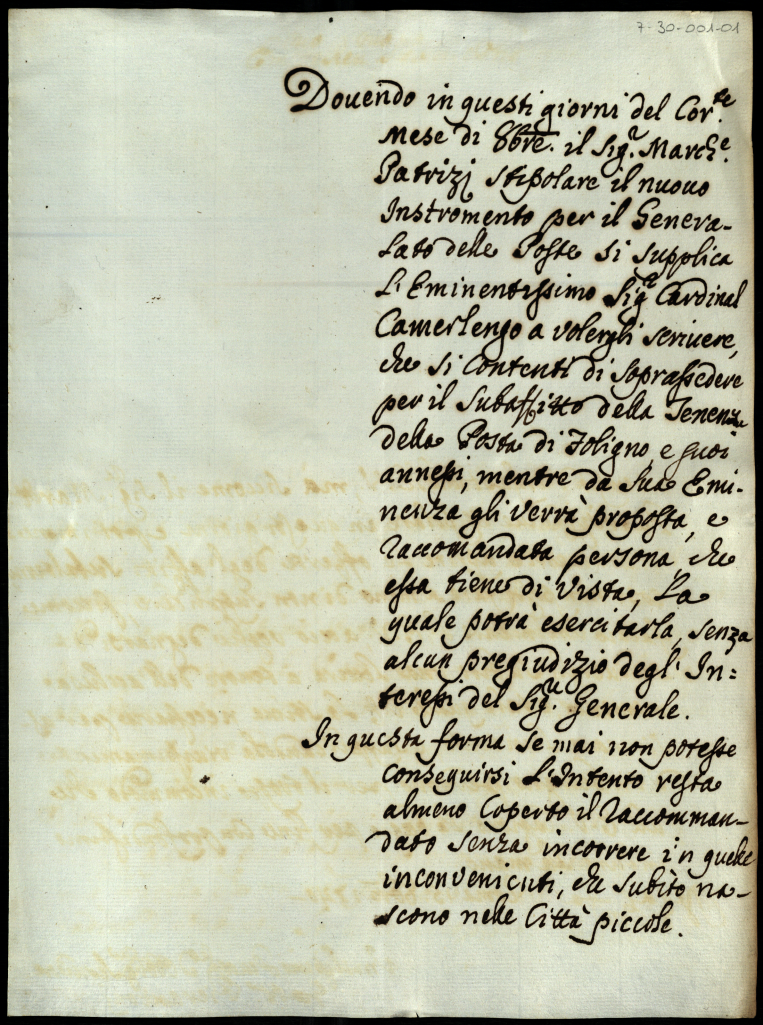 7-30-001-01
Dovendo in questi giorni del Cor.te
Mese di 8bre. il Sig.r March.e
Patrizj stipolare il nuovo
Instromento per il Genera-
lato delle Poste si supplica
L'Eminentissimo Sig.r Cardinal
Camerlengo a volergli scrivere,
che si contenti di soprassedere
per il subaffitto della Tenenza
della Posta di Foligno, e suoi
annessi, mentre da Sua Emi-
nenza gli verrà proposta, e
raccomandata persona, che
essa tiene di vista, la
quale potrà esercitarla, senza
alcun pregiudizio degl'In=
teressi del Sig.r Generale.
In questa forma se mai non potesse
conseguirsi l'Intento resta
almeno coperto il raccomman-
dato senza incorrere in quelle
inconvenienti, che subito na-
scono nelle Città piccole.